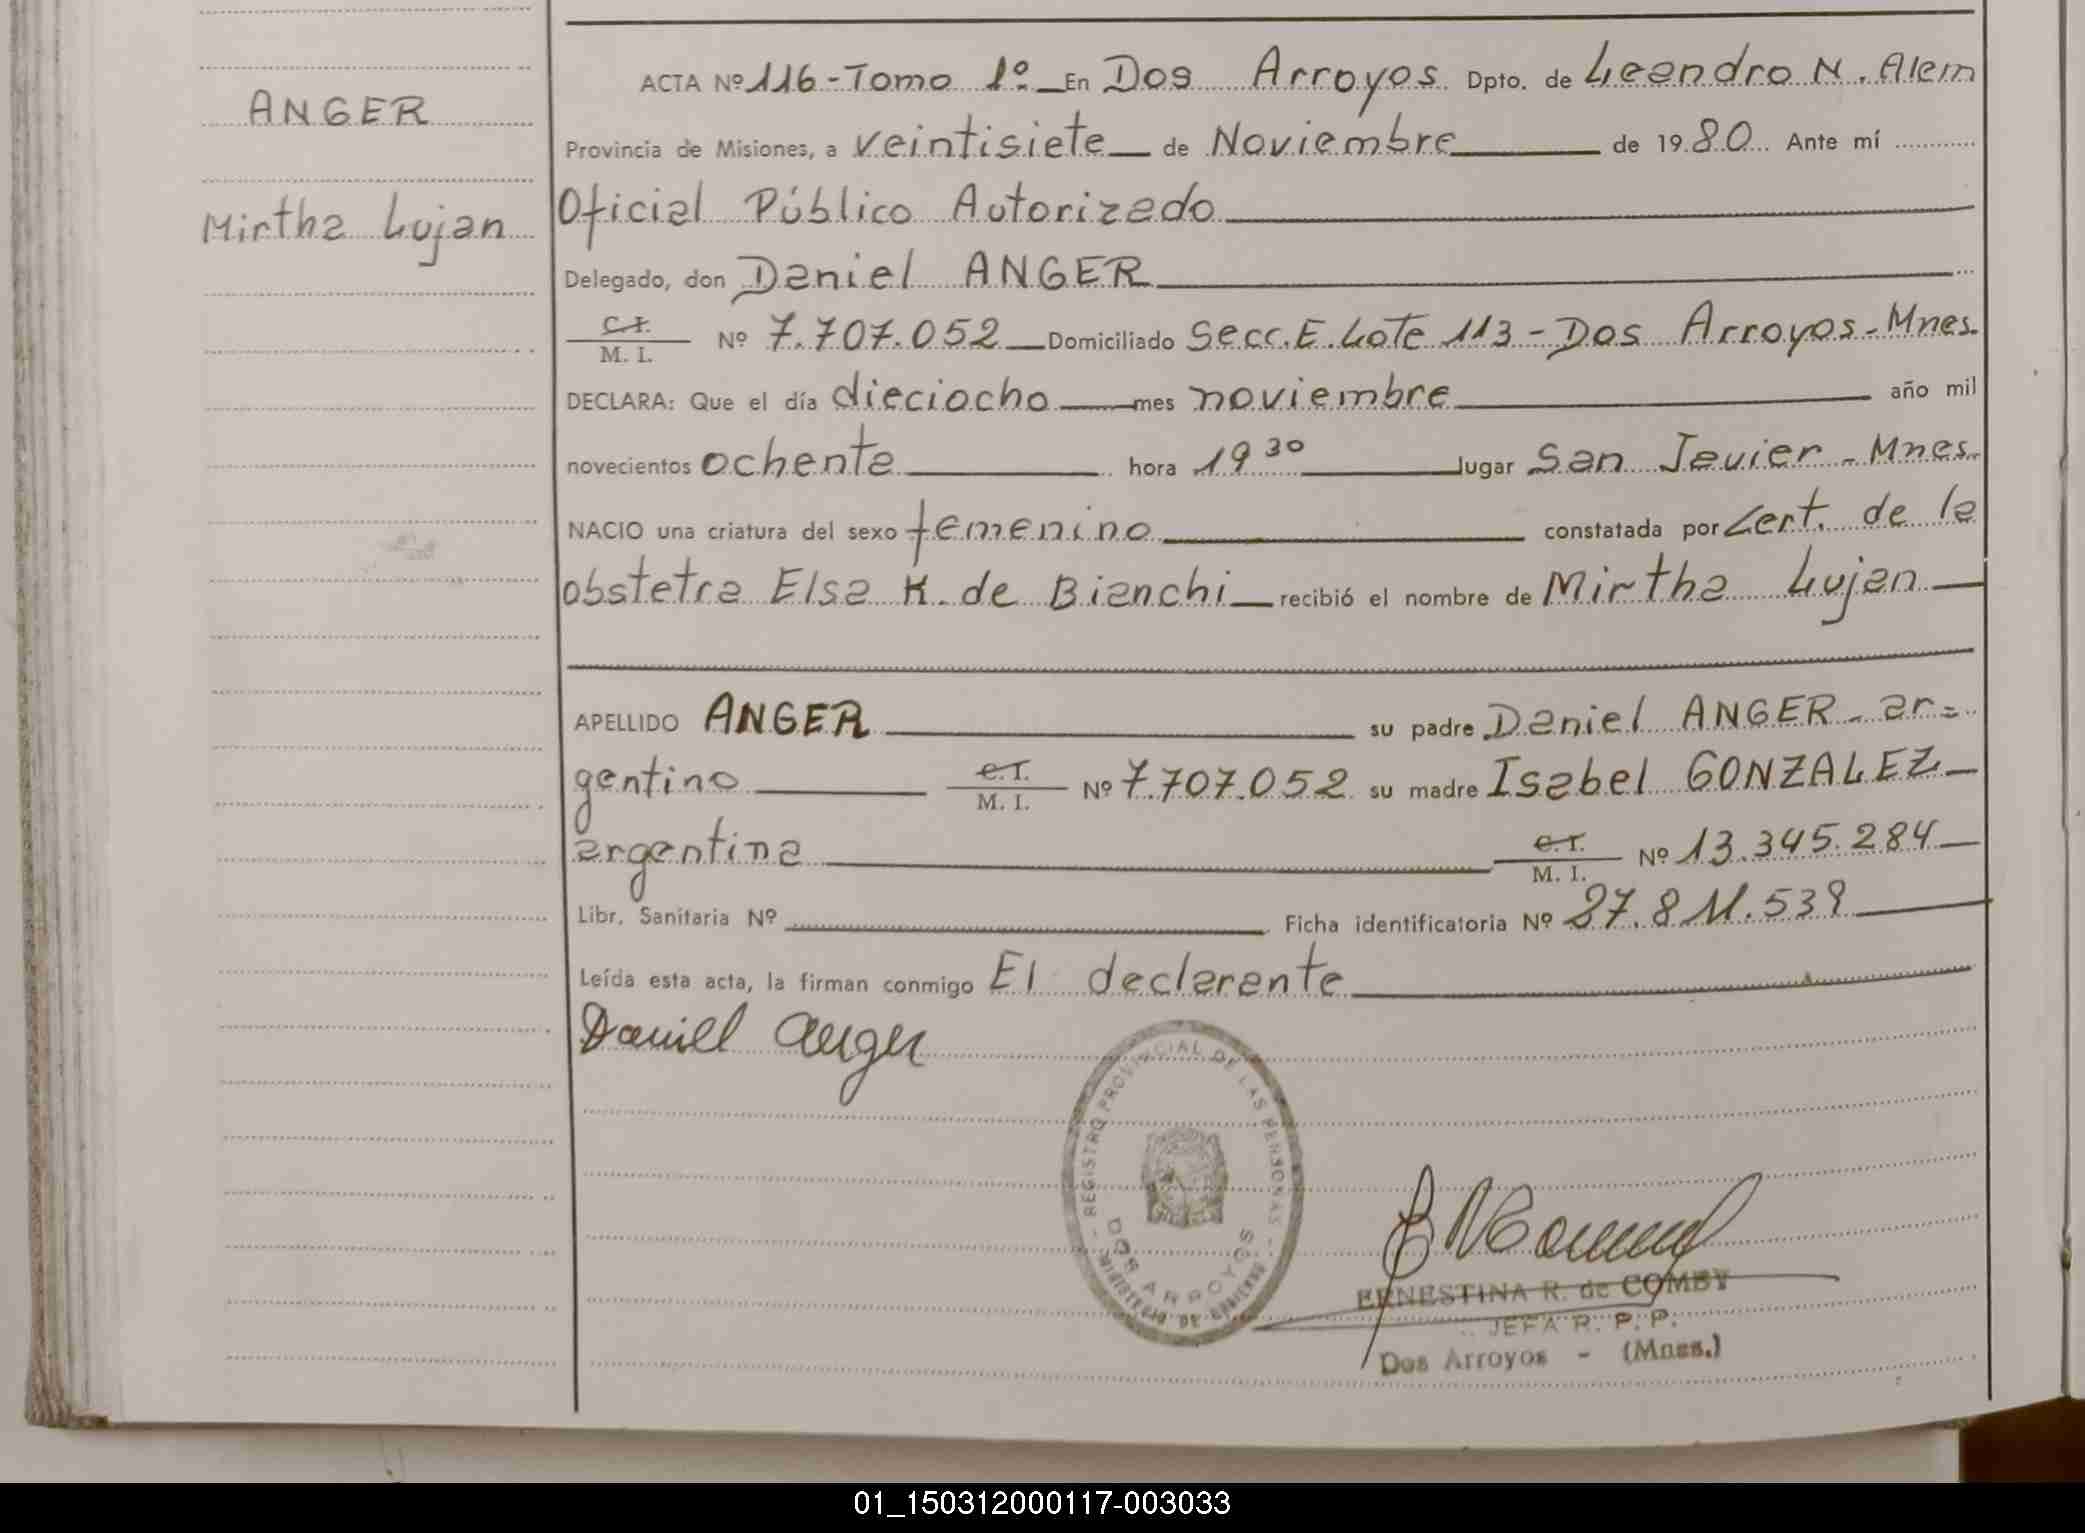 ANGER
Mirtha Lujan
ACTA Nº 116 - Tomo 1º. En Dos Arroyos Dpto. de Leandro N. Alem
Provincia de Misiones, a veintisiete de Noviembre de 1980 Ante mí
Oficial Público Autorizado
Delegado, don Daniel ANGER
C.I.
M. I. Nº 7.707.052 Domiciliado Secc. E. Lote 113 - Dos Arroyos - Mnes.
DECLARA: Que el día dieciocho mes noviembre año mil
novecientos ochenta hora 19 30 lugar San Javier - Mnes.
NACIO una criatura del sexo femenino constatada por Cert. de la
obstetra Elsa K. de Bianchi recibió el nombre de Mirtha Lujan
APELLIDO ANGER su padre Daniel ANGER - ar=
gentino C.I. M. I. Nº 7.707.052 su madre Isabel GONZALEZ
argentina C.I. M. I. Nº 13.345.284
Libr. Sanitaria Nº Ficha identificatoria Nº 27.811.539
Leída esta acta, la firman conmigo El declarante
Daniel Anger
REGISTRO PROVINCIAL DE LAS PERSONAS
DOS ARROYOS
MINISTERIO DE GOBIERNO
ERNESTINA R. de COMBY
JEFA R. P. P.
Dos Arroyos - (Mnes.)
01_150312000117-003033